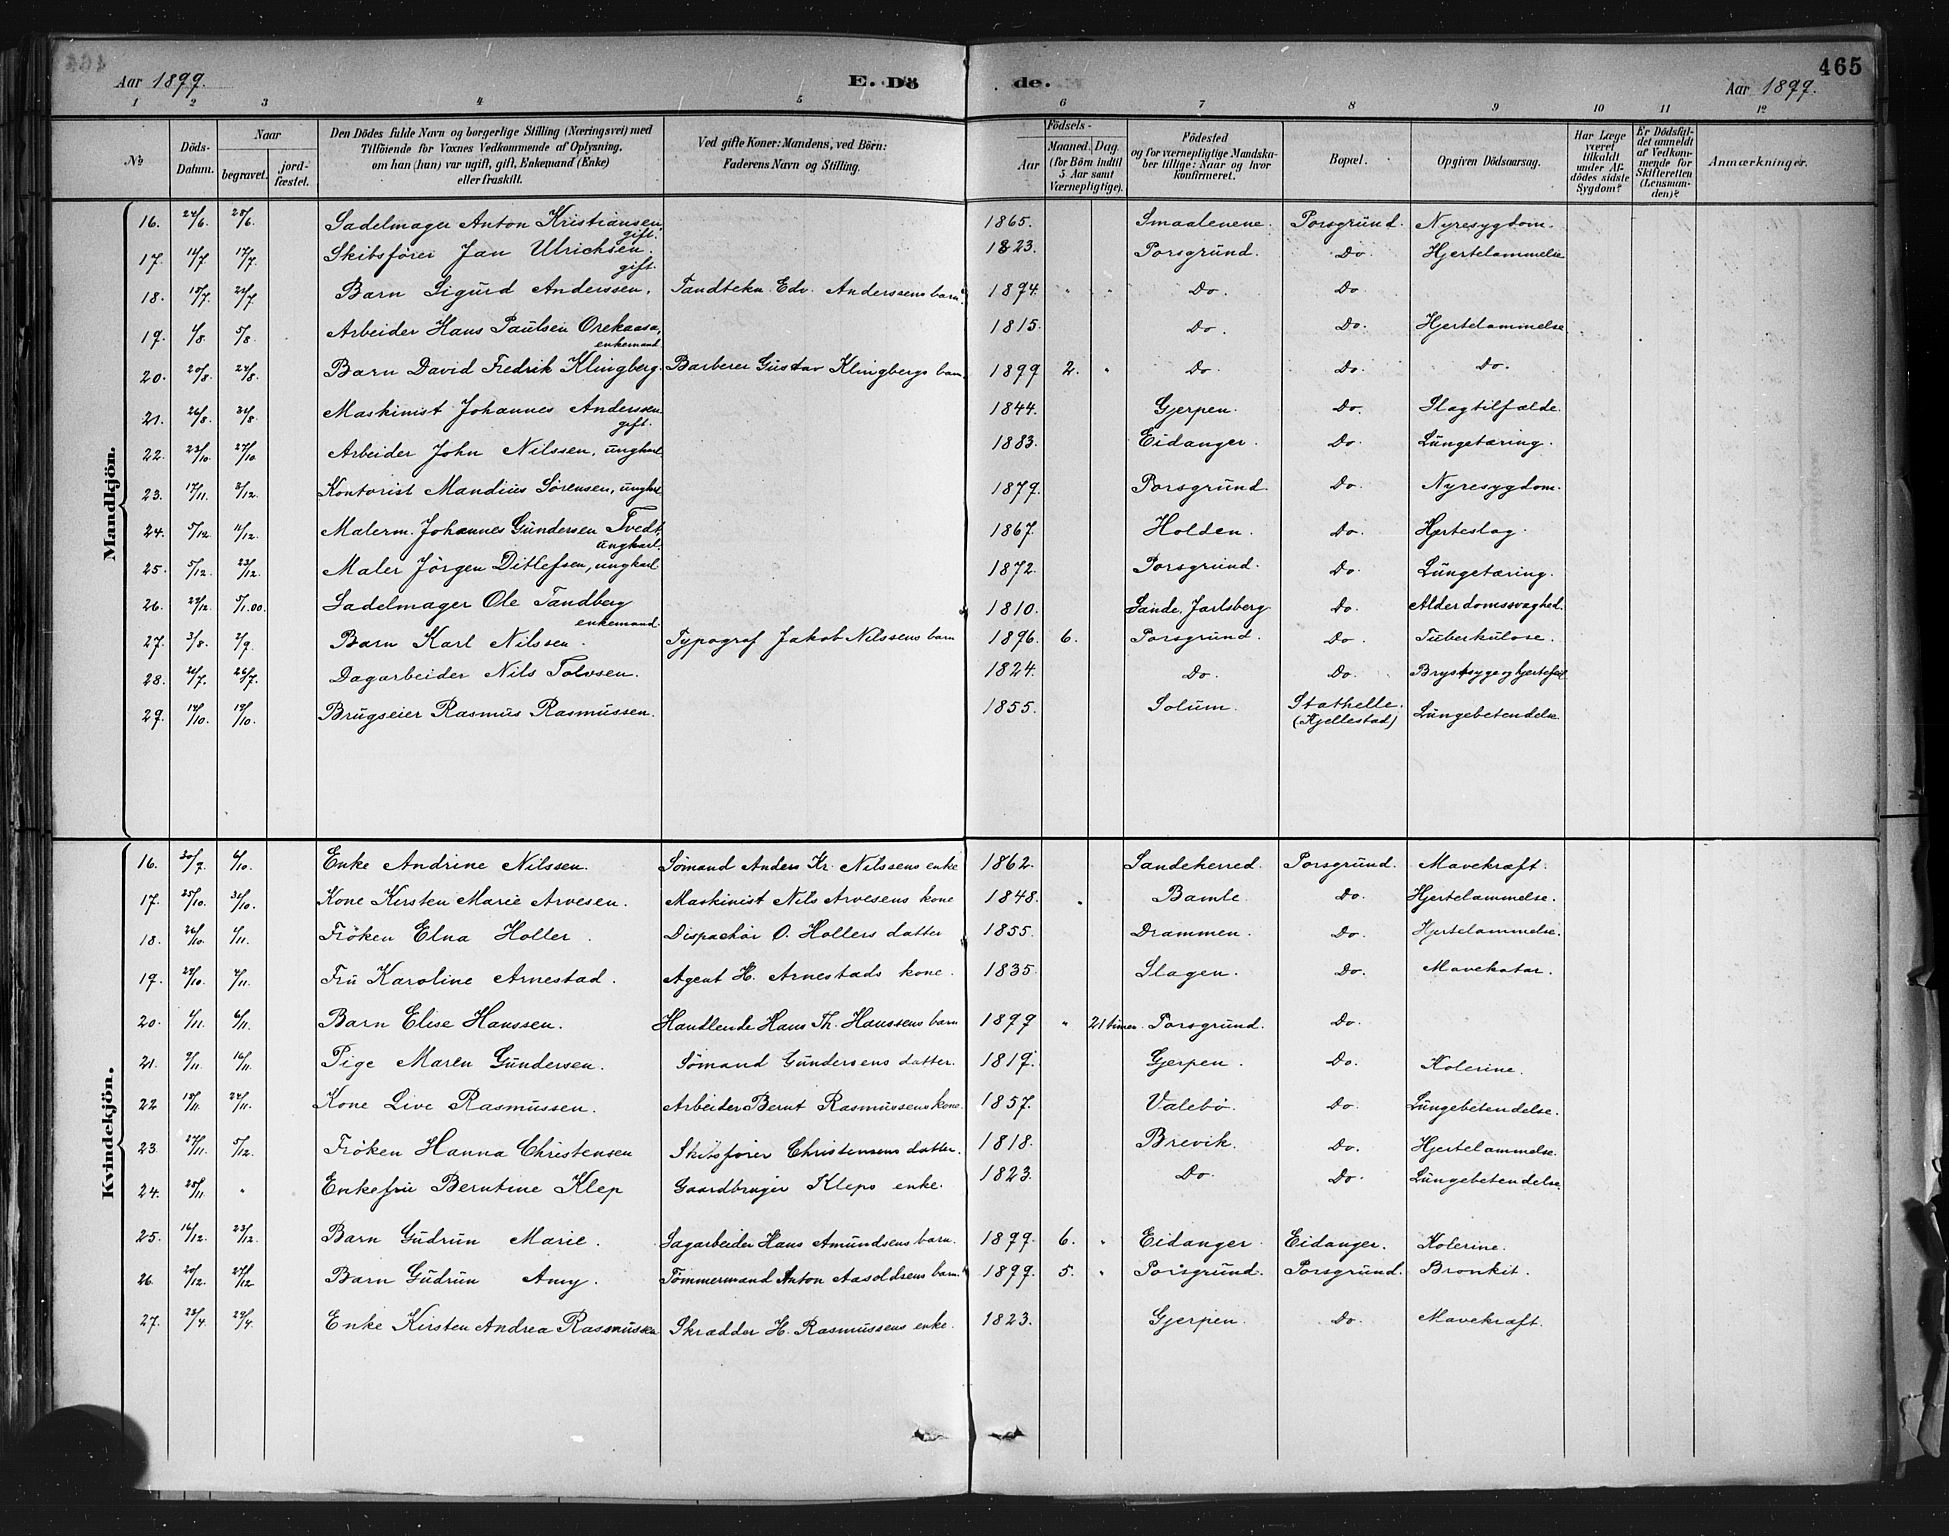 464
465
Aar 1899.
E. Dö
de.
Aar 1899.
1 2 3 4 5 6 7 8 9 10 11 12
No
Döds-Datum.
Naar
begravet.
jord-fæstet.
Den Dödes fulde Navn og borgerlige Stilling (Næringsvei) med
Tilföiende for Voxnes Vedkommende af Oplysning,
om han (hun) var ugift, gift, Enkemand (Enke)
eller fraskilt.
Ved gifte Koner: Mandens, ved Börn:
Faderens Navn og Stilling.
Födsels-
Aar
Maaned. Dag.
(for Börn indtil
5 Aar samt
Værnepligtige).
Födested
og for værnepligtige Mandska-
ber tillige: Naar og hvor
konfirmeret.
Bopæl.
Opgiven Dödsaarsag.
Har Læge
været
tilkaldt
under Af-
dödes sidste
Sygdom?
Er Dödsfal-
det anmeldt
af Vedkom-
mende for
Skifteretten
(Lensman-
den)?
Anmærkninger.
Mandkjön.
16. 24/6. 28/6. Sadelmager Anton Kristiansen, gift. 1865. Smaalenene. Porsgrund. Nyresygdom.
17. 14/7. 17/7. Skibsfører Jan Ulrichsen. gift. 1823. Porsgrund. Do. Hjertelammelse
18. 18/7. 22/7 Barn Sigurd Anderssen. Tandtekn. Edv. Anderssens barn. 1894. " " Do. Do
19. 1/8. 5/8. Arbeider Hans Paulsen Orekaasa, enkemand 1815. Do. Do. Hjertelammelse
20. 20/8. 24/8. Barn David Fredrik Klingberg. Barberer Gustav Klingbergs barn. 1899 2. " Do. Do. Do.
21. 26/8. 31/8 Maskinist Johannes Anderssen gift. 1844. Gjerpen. Do. Slagtilfælde.
22. 23/10. 27/10 Arbeider John Nilssen, ungkarl. 1883. Eidanger. Do. Lungetæring.
23. 17/11. 2/12. Kontorist Mandius Sörensen, ungkarl 1879. Porsgrund. Do. Nyresygdom.
24. 5/12. 11/12. Malerm. Johannes Gundersen Tvedt, ungkarl. 1867. Holden. Do. Hjerteslag.
25. 5/12. 23/12. Maler Jörgen Ditlefsen, ungkarl 1872. Porsgrund. Do. Lungetæring.
26. 29/12. 5/1.00. Sadelmager Ole Tandberg enkemand. 1810. Sande, Jarlsberg Do. Alderdomssvaghed.
27. 3/8. 2/9. Barn Karl Nilssen. Typograf Jakob Nilssens barn 1896. 6. Porsgrund. Do. Tuberkulose.
28. 21/7. 26/7. Dagarbeider Nils Tolvsen. 1824. Do. Do. Brystsyge og hjertefeil
29. 14/10. 18/10. Brugseier Rasmus Rasmussen. 1855. Solum. Stathelle. (Kjellestad) Lungebetendelse
Kvindekjön.
16. 30/9. 6/10. Enke Andrine Nilssen. Sømand Anders Kr. Nilssens enke 1862. Sandeherred. Porsgrund. Mavekræft.
17. 25/10. 31/10. Kone Kirsten Marie Arvesen. Maskinist Nils Arvesens kone 1848. " Bamle. Do. Hjertelammelse.
18. 26/10. 1/11. Fröken Elna Holler. Dispachör O. Hollers datter 1855. Drammen. Do. Hjertelammelse.
19. 29/10. 4/11. Fru Karoline Arnestad. Agent H. Arnestads kone. 1835. Slagen. Do. Mavekatar.
20. 4/11. 6/11. Barn Elise Hanssen. Handlende Hans Th. Hanssens barn 1899 " 21 timer. Porsgrund. Do.
21. 9/11. 16/11. Pige Maren Gundersen. Sømand Gundersens datter. 1819. Gjerpen. Do. Kolerine.
22 18/11. 24/11. Kone Live Rasmussen. Arbeider Bernt Rasmussens kone. 1857. Valebø. Do. Lungebetendelse.
23. 27/11. 5/12. Fröken Hanna Christensen Skibsfører Christensens datter. 1818. Brevik. Do. Hjertelammelse.
24. 25/11. " Enkefru Berntine Klep Gaardbruger Kleps enke. 1823. Do. Do. Lungebetendelse.
25. 16/12. 23/12. Barn Gudrun Marie. Sagarbeider Hans Amundsens barn. 1899. 6. " Eidanger. Eidanger. Kolerine.
26. 20/12. 27/12 Barn Gudrun Amy. Tømmermand Anton Aasoldsens barn. 1899. 5. " Porsgrund. Porsgrund. Bronkit.
27. 23/4. 29/4. Enke Kirsten Andrea Rasmussen Skrædder H. Rasmussens enke. 1823. Gjerpen. Do. Mavekræft.